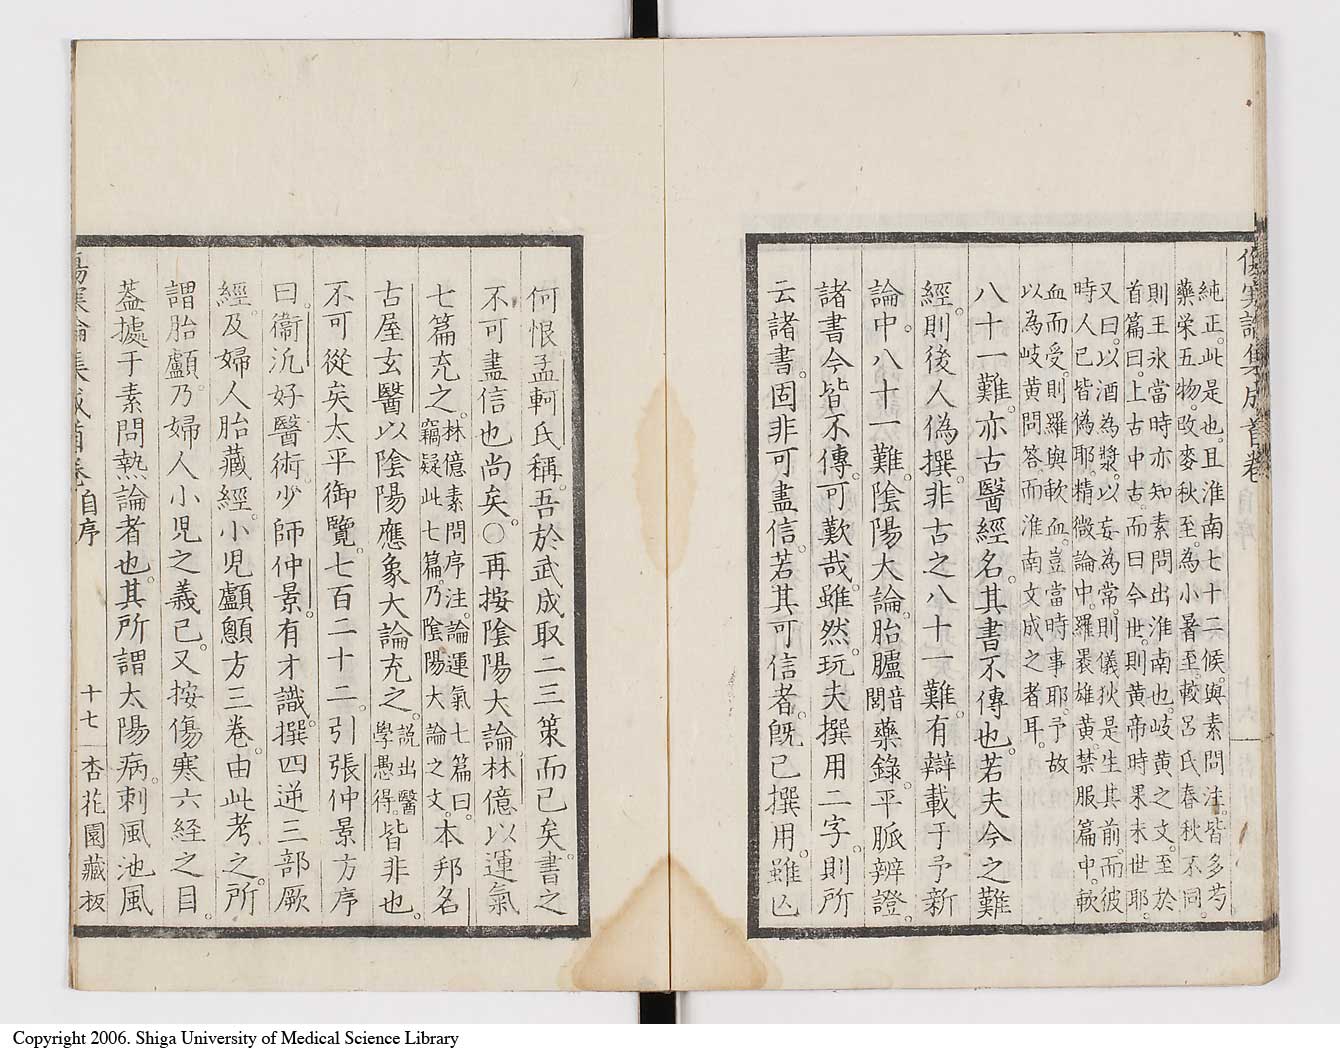 傷寒論集成首卷
純正。此是也。且淮南七十二候。與素問注。皆多芍
藥栄五物。改麥秋至。為小暑至。較呂氏春秋不同。
則王氷當時亦知素問出淮南也。岐黄之文。至於
首篇曰。上古中古。而曰今世。則黄帝時果末世耶。
又曰。以酒為漿。以妄為常。則儀狄是生其前。而彼
時人已皆偽耶。精微論中。羅褁雄黄。禁服篇中。歃
血而受。則羅與歃血。豈當時事耶。予故
以為岐黄問答。而淮南文成之者耳。
八十一難。亦古醫經名。其書不傳也。若夫今之難
經。則後人偽撰。非古之八十一難。有辯載于予新
論中。八十一難。陰陽大論。胎臚音閭藥錄。平脈辨證。
諸書今皆不傳。可歎哉。雖然。玩夫撰用二字。則所
云諸書。固非可盡信。若其可信者。既已撰用。雖亾
何恨。孟軻氏稱。吾於武成取二三策而已矣。書之
不可盡信也尚矣。〇再按陰陽大論。林億以運氣
七篇充之。林億素問序注。論運氣七篇曰。
竊疑此七篇。乃陰陽大論之文。本邦名
古屋玄醫以陰陽應象大論充之。說出醫
學愚得。皆非也。
不可從矣。太平御覽。七百二十二。引張仲景方序
曰。衞沉好醫術。少師仲景。有才識。撰四逆三部厥
經。及婦人胎藏經。小兒顱顖方三卷。由此考之。所
謂胎顱。乃婦人小児之義已。又按傷寒六経之目。
葢據于素問熱論者也。其所謂太陽病。刺風池風
傷寒論集成首卷 自序 十七 杏花園藏板
Copyright 2006. Shiga University of Medical Science Library